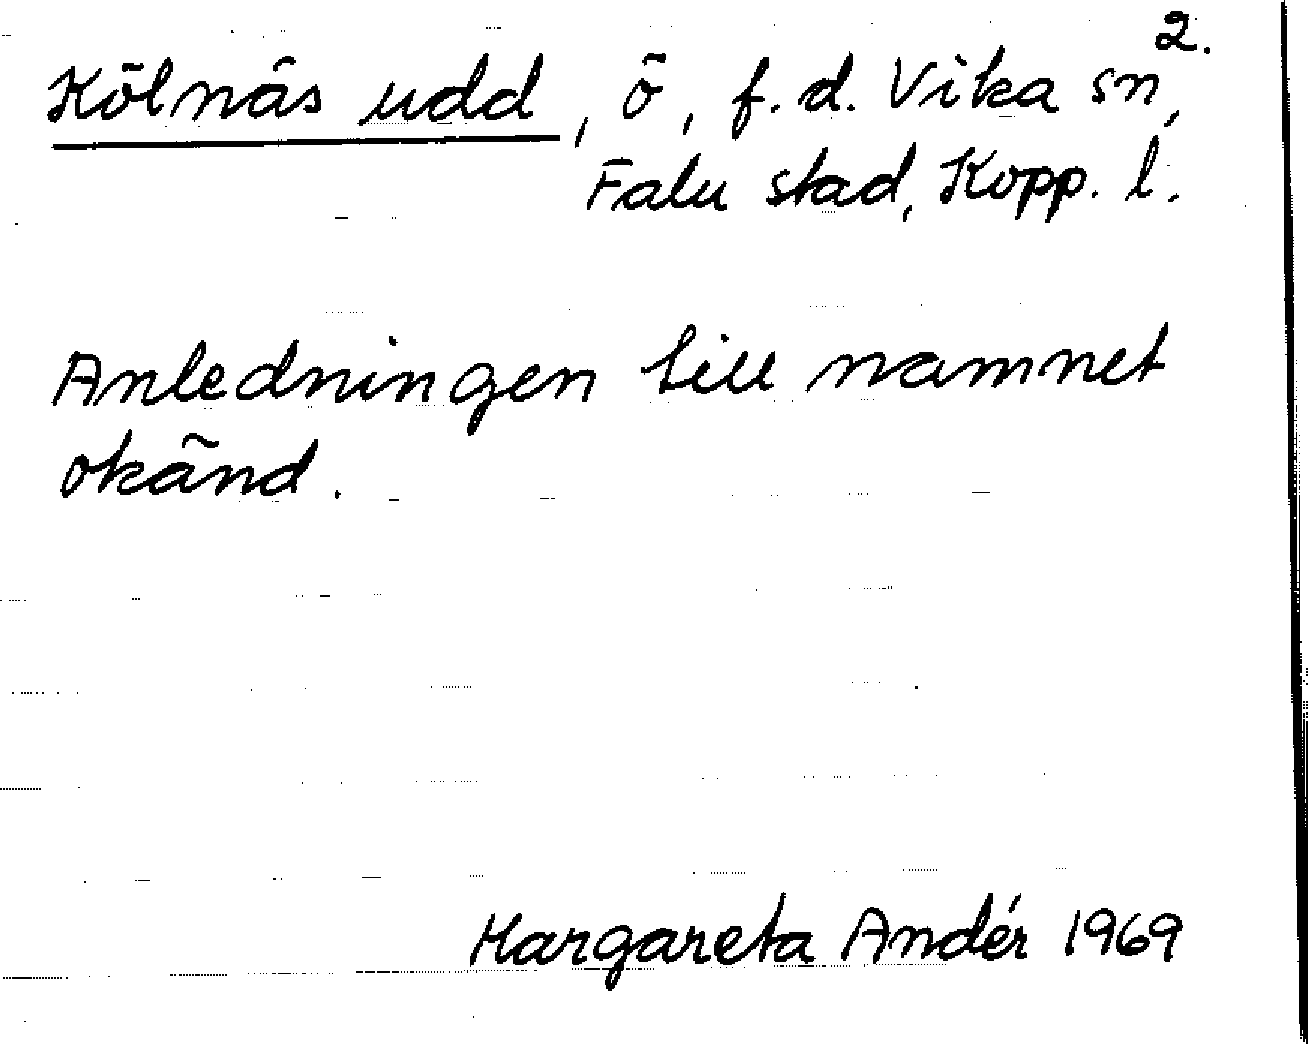 2.
Kölnäs udd, ö, f.d. Vika sn,
Falu stad, Kopp. l.
Anledningen till namnet
okänd.
Margareta Andér 1969